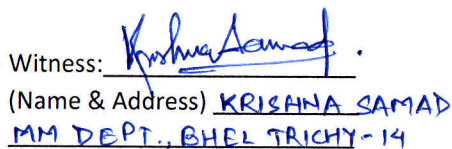 Witness: Krishna Samad.
(Name & Address) KRISHNA SAMAD
MM DEPT., BHEL TRICHY-14